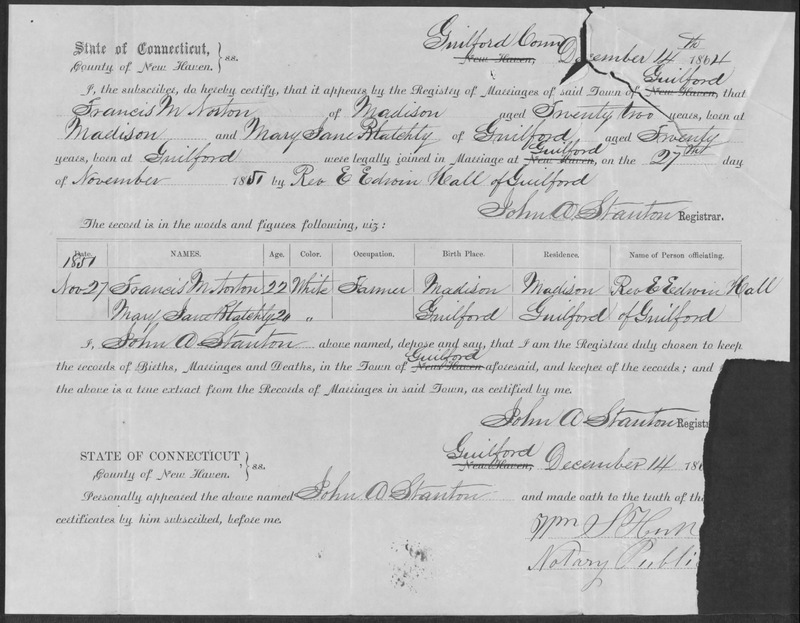 Guilford Conn December 14th 1864
State of Connecticut, } ss. New Haven,
County of New Haven.
Guilford
I, the subscriber, do hereby certify, that it appears by the Registry of Marriages of said Town of New Haven, that
Francis M Norton of Madison aged Twenty two years, born at
Madison and Mary Jane Blatchly of Guilford aged Twenty
Guilford
years, born at Guilford were legally joined in Marriage at New Haven, on the 27th day
of November 1851 by Rev E Edwin Hall of Guilford
John A Stanton Registrar.
The record is in the words and figures following, viz:
Date. NAMES. Age. Color. Occupation. Birth Place. Residence. Name of Person officiating.
1851
Nov 27 Francis M Norton 22 White Farmer Madison Madison Rev E Edwin Hall
Mary Jane Blatchly 20 " Guilford Guilford of Guilford
I, John A Stanton above named, depose and say, that I am the Registrar duly chosen to keep
Guilford
the records of Births, Marriages and Deaths, in the Town of New Haven aforesaid, and keeper of the records; and
the above is a true extract from the Records of Marriages in said Town, as certified by me.
John A Stanton Registra
Guilford
STATE OF CONNECTICUT, } ss. New Haven, December 14 186
County of New Haven.
Personally appeared the above named John A Stanton and made oath to the truth of th
certificates by him subscribed, before me.
Wm S
Notary Publi